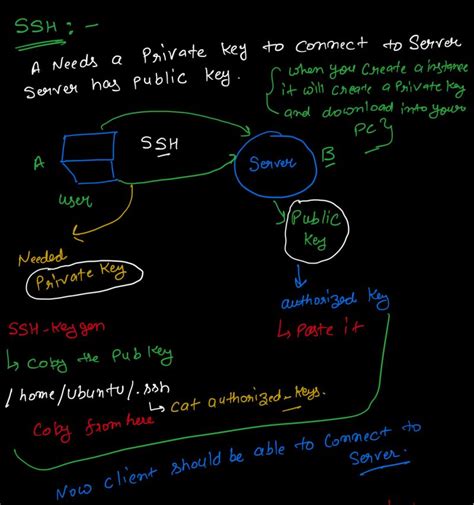 SSH : -
A Needs a Private key to connect to Server
Server has public key.
{ when you create a instance
it will create a Private key
and download into your
PC }
A
SSH
Server
B
user
Public
Key
Needed
Private Key
authorized key
↳ Paste it
SSH-Keygen
↳ Coby the Pub Key
/home/ubuntu/.ssh
↳ cat authorized_keys.
Coby from here
Now client should be able to connect to
Server.